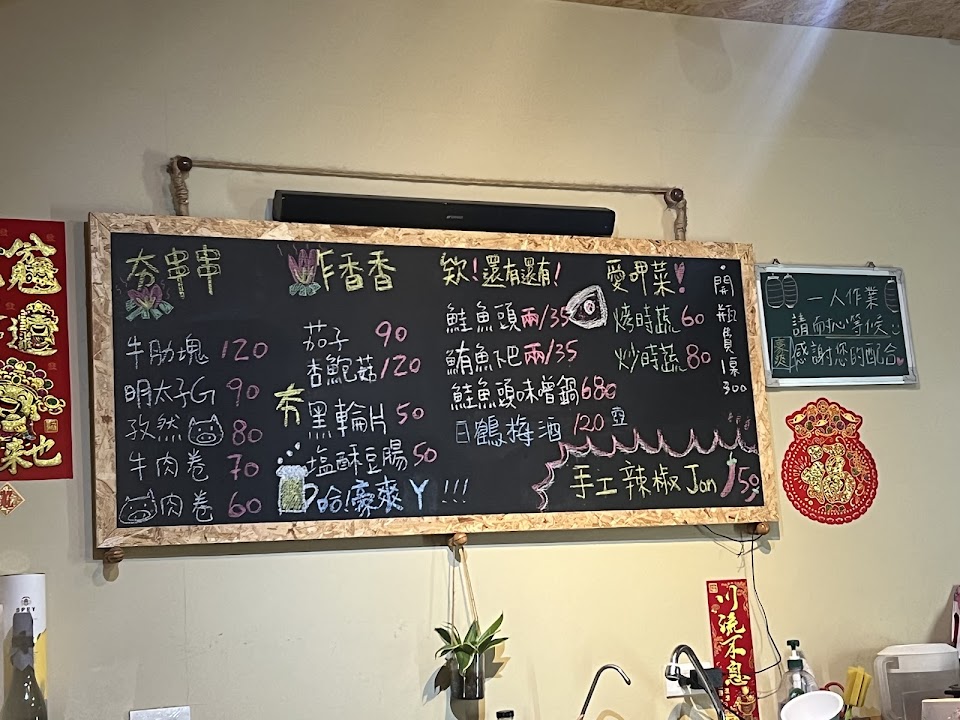 夯串串
牛肋塊 120
明太子G 90
孜然 80
牛肉卷 70
肉卷 60
炸香香
茄子 90
杏鮑菇 120
夯
黑輪片 50
塩酥豆腸 50
哈!豪爽Y!!!
欸!還有還有!
鮭魚頭兩/35
鮪魚下巴兩/35
鮭魚頭味噌鍋680
日鶴梅酒 120 壺
愛呷菜!
烤時蔬60
炒時蔬80
手工辣椒Jan 150
開瓶費1桌300
一人作業
請耐心等候
感謝您的配合
川流不息
來也